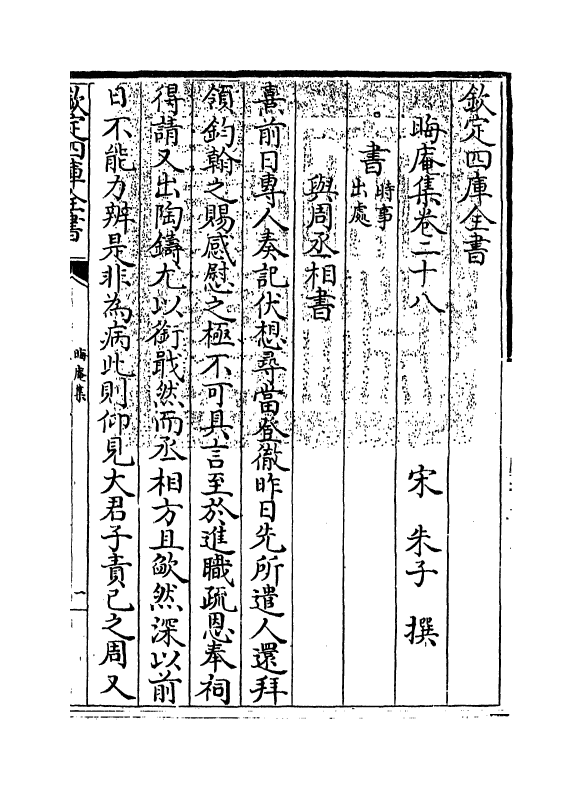 欽定四庫全書
晦庵集卷二十八
宋　朱子　撰
書時事出處
與周丞相書
熹前日專人奏記伏想尋當登徹昨日先所遣人還拜
領鈞翰之賜感慰之極不可具言至於進職疏恩奉祠
得請又出陶鑄尤以銜戢然而丞相方且歉然深以前
日不能力辨是非為病此則仰見大君子責已之周又
欽定四庫全書
晦庵集
一